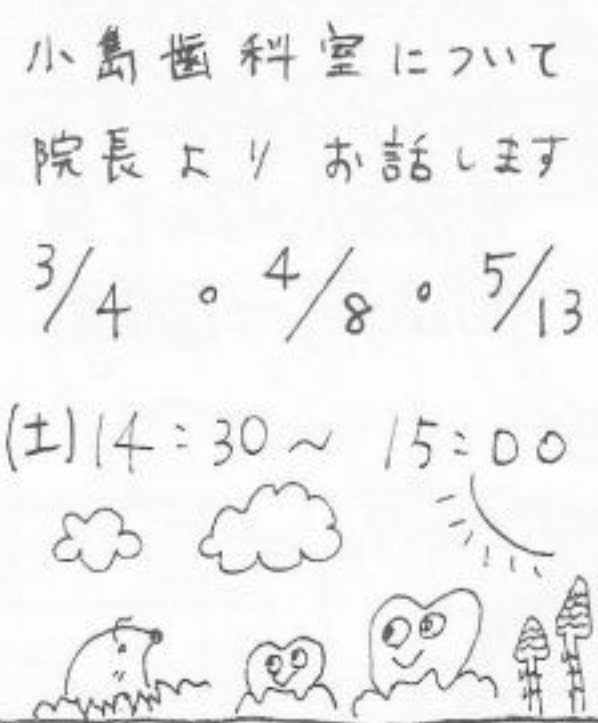 小島歯科室について
院長より お話します
3/4 ・ 4/8 ・ 5/13
(土) 14:30～ 15:00